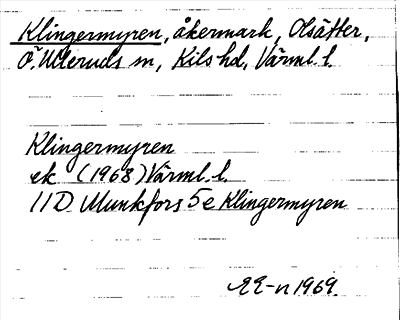 Klingermyren, åkermark, Olsätter,
Ö. Ulleruds sn, Kils hd, Värml. l.
Klingermyren
ek (1968) Värml. l.
11D Munkfors 5e Klingermyren
EE-n 1969